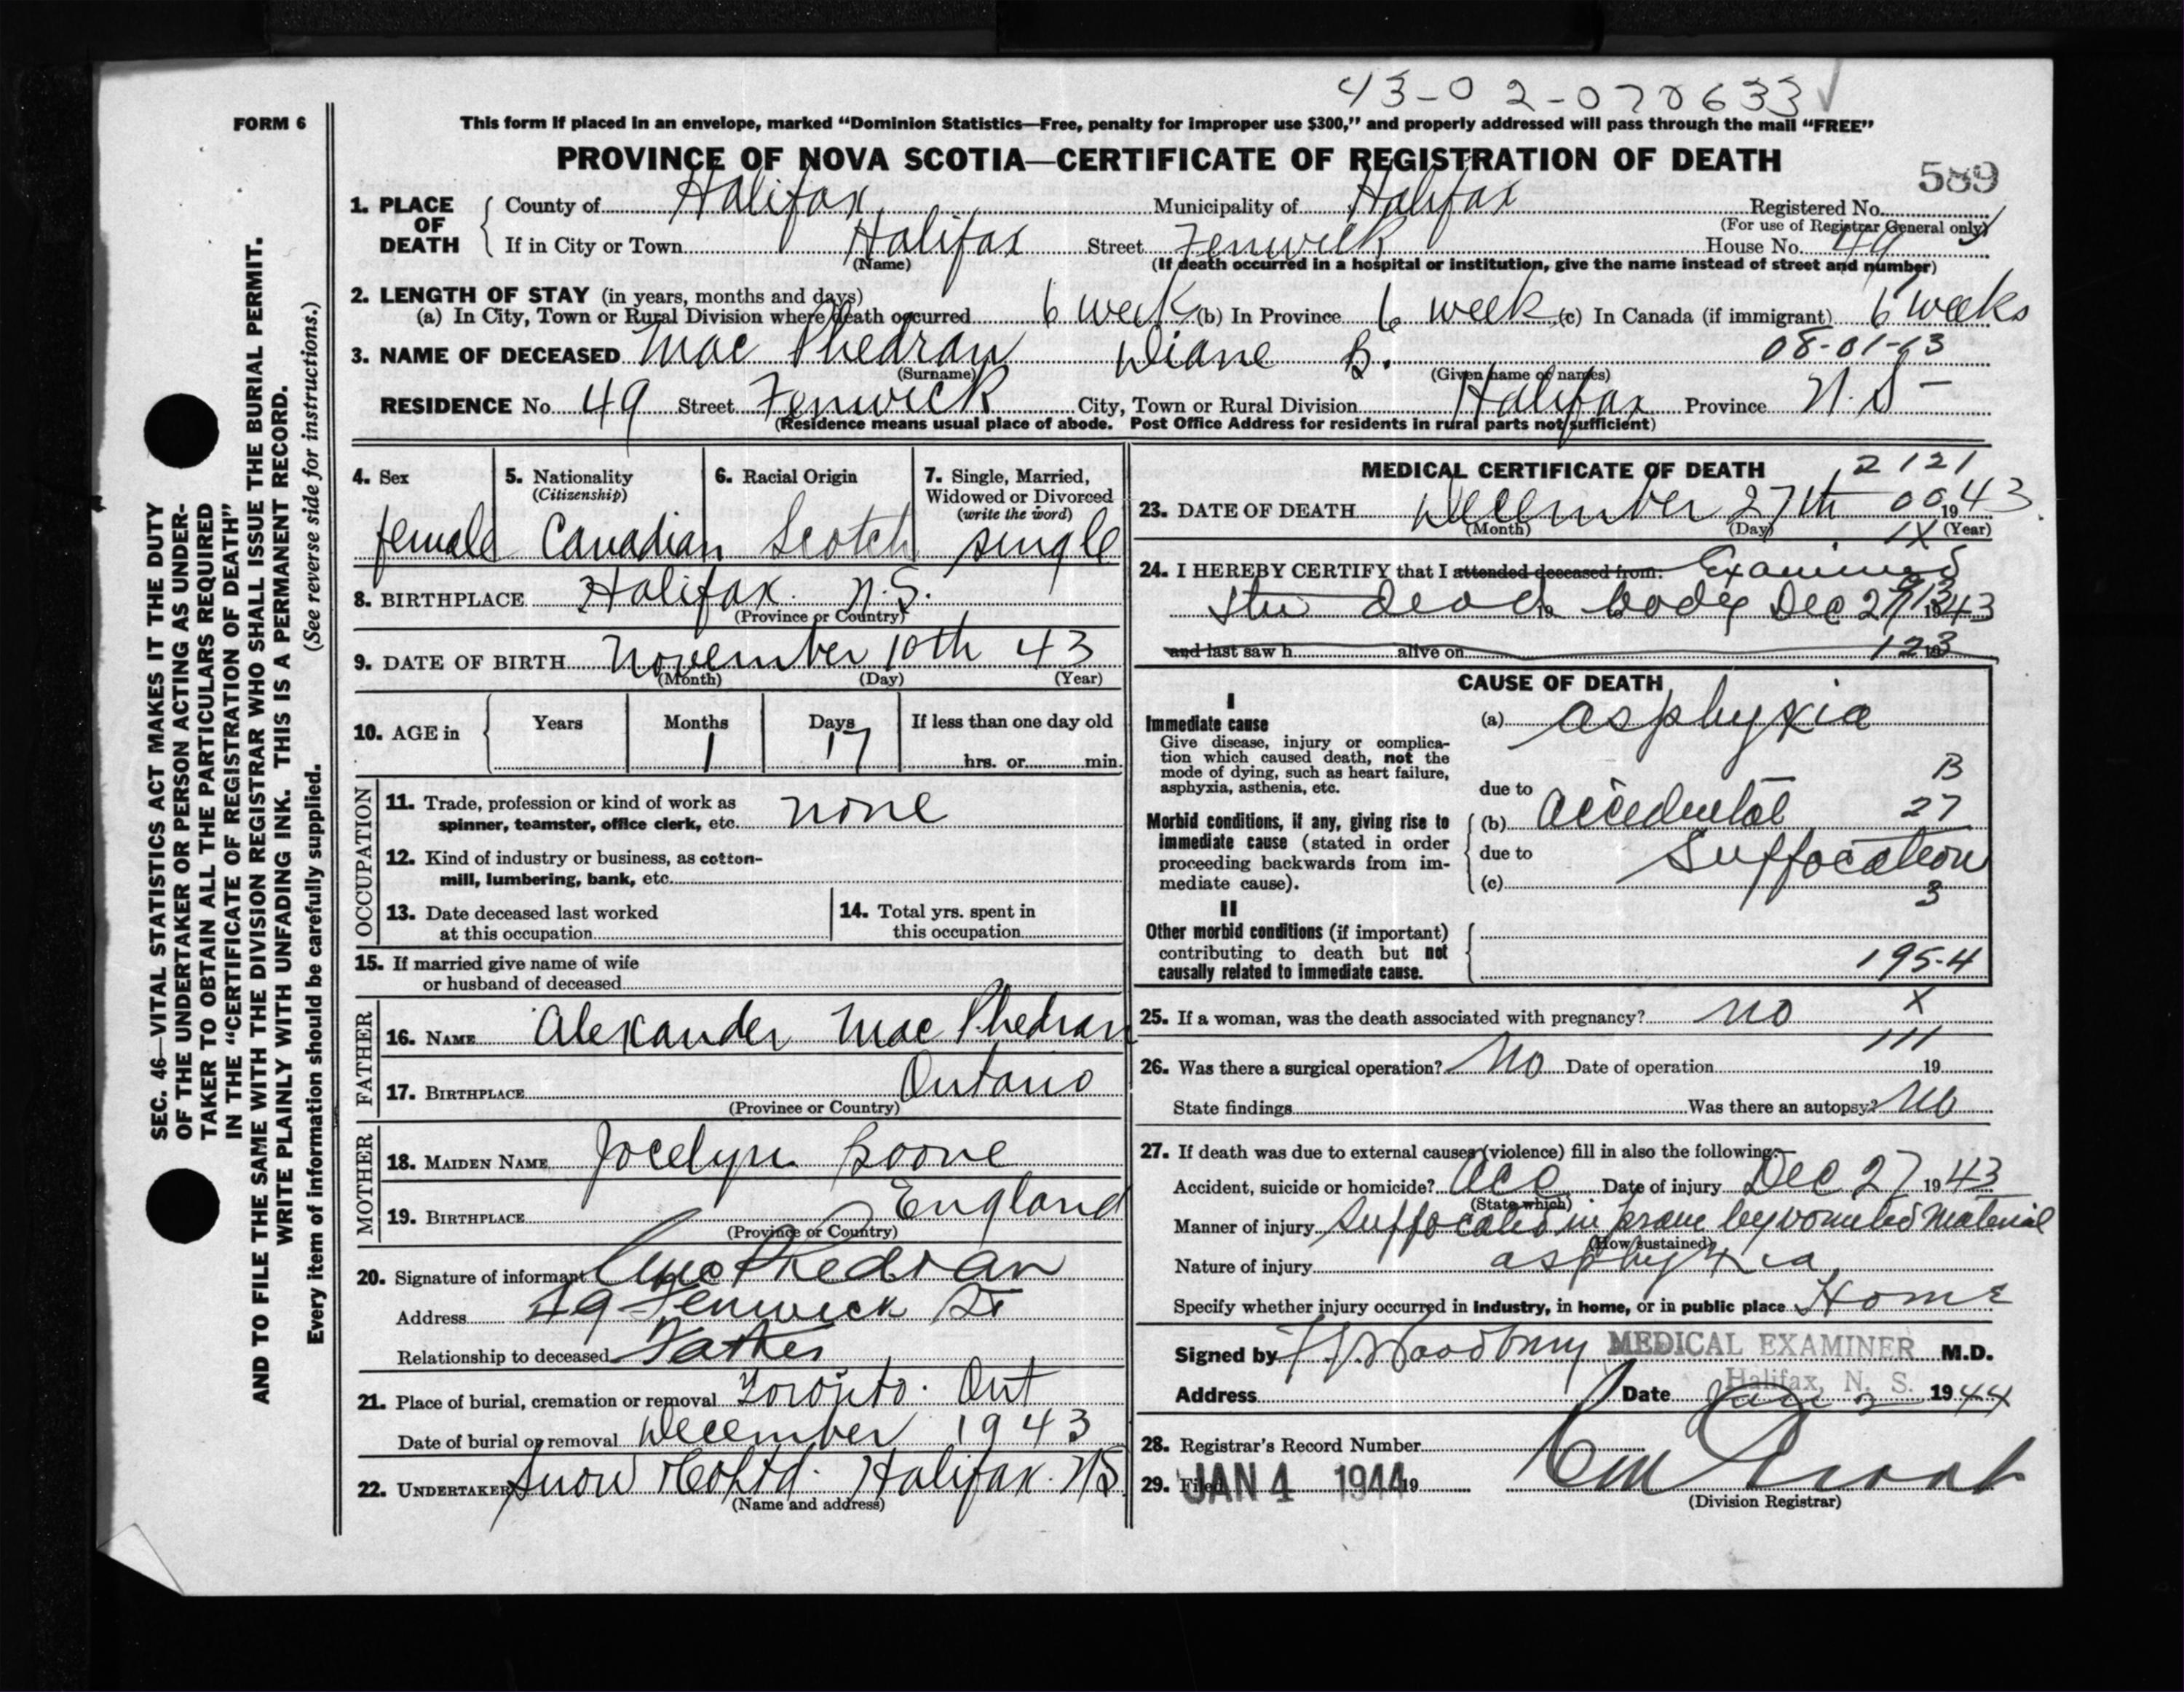 43-02-070633
FORM 6
This form if placed in an envelope, marked “Dominion Statistics—Free, penalty for improper use $300,” and properly addressed will pass through the mail “FREE”
PROVINCE OF NOVA SCOTIA—CERTIFICATE OF REGISTRATION OF DEATH
589
1. PLACE OF DEATH County of Halifax Municipality of Halifax Registered No.
(For use of Registrar General only)
If in City or Town Halifax Street Fenwick House No. 49
(Name) (If death occurred in a hospital or institution, give the name instead of street and number)
2. LENGTH OF STAY (in years, months and days)
(a) In City, Town or Rural Division where death occurred 6 week (b) In Province 6 week (c) In Canada (if immigrant) 6 weeks
3. NAME OF DECEASED Mac Phedran Diane B. 08-01-63
(Surname) (Given name or names)
RESIDENCE No. 49 Street Fenwick City, Town or Rural Division Halifax Province N.S-
(Residence means usual place of abode. Post Office Address for residents in rural parts not sufficient)
4. Sex 5. Nationality (Citizenship) 6. Racial Origin 7. Single, Married, Widowed or Divorced (write the word)
female Canadian Scotch single
8. BIRTHPLACE Halifax. N.S.
(Province or Country)
9. DATE OF BIRTH November 10th 43
(Month) (Day) (Year)
10. AGE in Years Months Days If less than one day old
1 17 hrs. or min.
OCCUPATION
11. Trade, profession or kind of work as
spinner, teamster, office clerk, etc. none
12. Kind of industry or business, as cotton-
mill, lumbering, bank, etc.
13. Date deceased last worked
at this occupation
14. Total yrs. spent in
this occupation
15. If married give name of wife
or husband of deceased
FATHER
16. NAME Alexander Mac Phedran
17. BIRTHPLACE Ontario
(Province or Country)
MOTHER
18. MAIDEN NAME Jocelyn Boone
19. BIRTHPLACE England
(Province or Country)
20. Signature of informant MacPhedran
Address 49 Fenwick St
Relationship to deceased Father
21. Place of burial, cremation or removal Toronto. Ont
Date of burial or removal December 1943
22. UNDERTAKER Snow & Co Ltd. Halifax. NS
(Name and address)
MEDICAL CERTIFICATE OF DEATH
2 121
23. DATE OF DEATH December 27th 00 1943
(Month) (Day) (Year)
IX
24. I HEREBY CERTIFY that I attended deceased from: Examined
the dead body Dec 27 1943
and last saw h alive on 19
123
CAUSE OF DEATH
I
Immediate cause
Give disease, injury or complica-
tion which caused death, not the
mode of dying, such as heart failure,
asphyxia, asthenia, etc.
(a) asphyxia
B
due to
Morbid conditions, if any, giving rise to
immediate cause (stated in order
proceeding backwards from im-
mediate cause).
(b) accidental 27
due to suffocation
(c) 3
II
Other morbid conditions (if important)
contributing to death but not
causally related to immediate cause.
195-4
25. If a woman, was the death associated with pregnancy? no X
111
26. Was there a surgical operation? No Date of operation 19
State findings Was there an autopsy? No
27. If death was due to external causes (violence) fill in also the following:
Accident, suicide or homicide? Acc Date of injury Dec 27 1943
(State which)
Manner of injury Suffocated in pram by vomited material
(How sustained)
Nature of injury asphyxia
Specify whether injury occurred in industry, in home, or in public place Home
Signed by Woodbury MEDICAL EXAMINER M.D.
Address Halifax, N. S. Date 1944
28. Registrar's Record Number
29. Filed JAN 4 1944 19
(Division Registrar)
SEC. 46—VITAL STATISTICS ACT MAKES IT THE DUTY
OF THE UNDERTAKER OR PERSON ACTING AS UNDER-
TAKER TO OBTAIN ALL THE PARTICULARS REQUIRED
IN THE “CERTIFICATE OF REGISTRATION OF DEATH”
AND TO FILE THE SAME WITH THE DIVISION REGISTRAR WHO SHALL ISSUE THE BURIAL PERMIT.
WRITE PLAINLY WITH UNFADING INK. THIS IS A PERMANENT RECORD.
Every item of information should be carefully supplied. (See reverse side for instructions.)